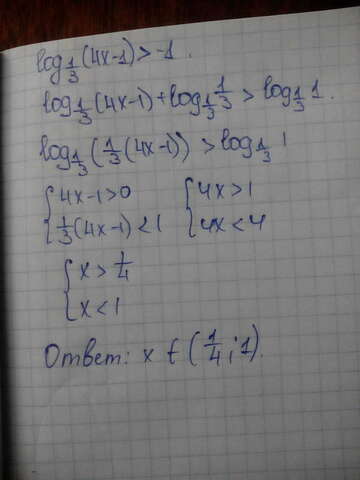 log_{1/3}(4x-1)>-1.
log_{1/3}(4x-1)+log_{1/3} 1/3 > log_{1/3} 1.
log_{1/3}(1/3(4x-1)) > log_{1/3} 1
{4x-1>0 {4x>1
{1/3(4x-1)<1 {4x<4
{x>1/4
{x<1
Ответ: x ∈ (1/4; 1).